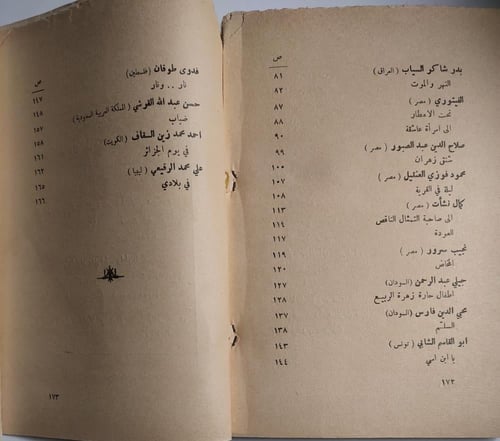 ص
بدر شاكر السياب (العراق) ٨١
النهر والموت ٨٢
الفيتوري ( مصر ) ٨٧
تحت الامطار ٨٨
الى امرأة عاشقة ٩٠
صلاح الدين عبد الصبور ( مصر ) ٩٩
شنق زهران ١٠٠
محمود فوزي العنتيل ( مصر ) ١٠٧
ليلة في القرية ١٠٨
كمال نشأت ( مصر ) ١١٣
الى صاحبة التمثال الناقص ١١٤
العودة ١١٧
نجيب سرور ( مصر ) ١١٩
المخاض ١٢٠
جيلي عبد الرحمن (السودان) ١٢٧
اطفال حارة زهرة الربيع ١٢٨
محي الدين فارس (السودان) ١٣٧
السلّم ١٣٨
ابو القاسم الشابي ( تونس ) ١٤٣
يا ابن امي ١٤٤
١٧٢
ص
فدوى طوقان (فلسطين) ١٤٧
نار .. ونار ١٤٨
حسن عبد الله القرشي (المملكة العربية السعودية) ١٥٧
ضباب ١٥٨
احمد محمد زين السقاف (الكويت) ١٦١
في يوم الجزائر
علي محمد الرقيعي ( ليبيا ) ١٦٥
في بلادي ١٦٦
١٧٣